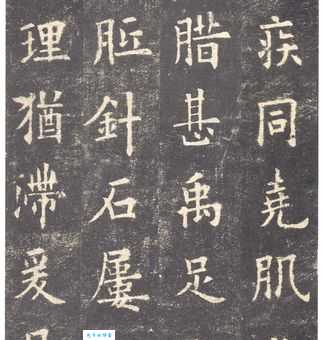 疾同堯肌
腊甚禹足
胝針石屢
理猶滯爰